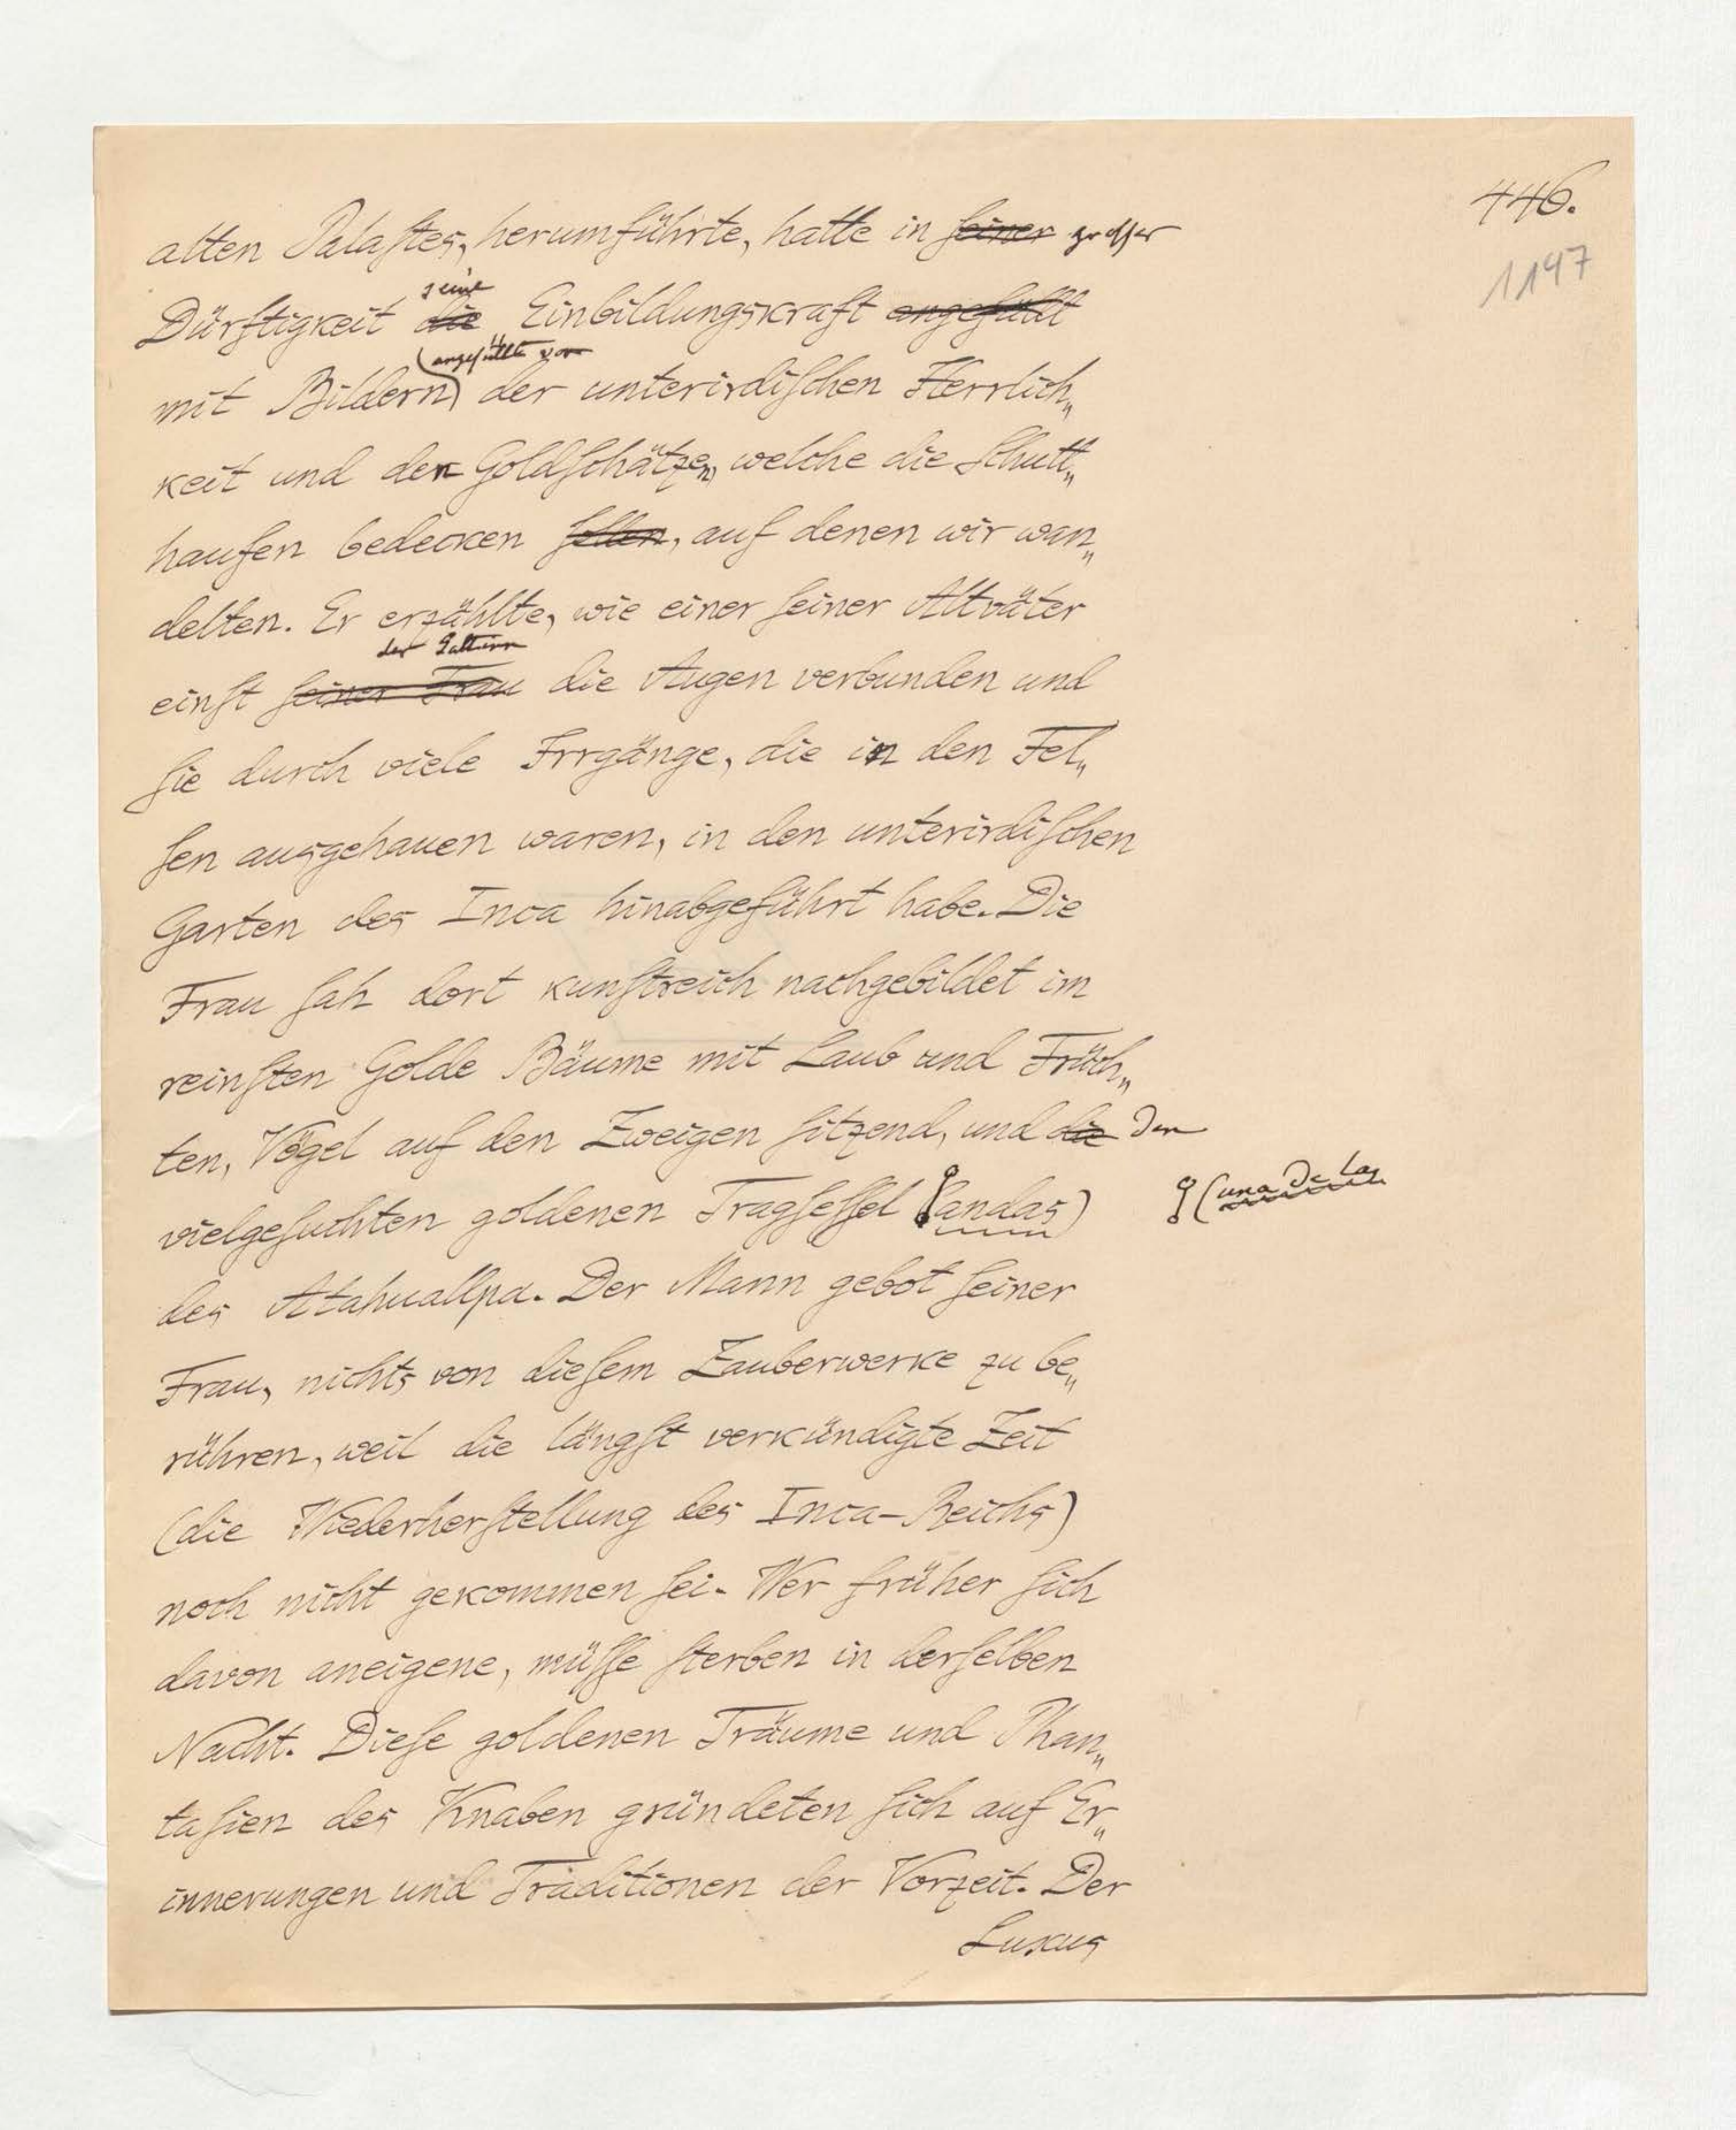 446.
1197
alten Palastes, herumführte, hatte in seiner grosser
seine
Dürftigkeit die Einbildungskraft angefüllt
angefüllt von
mit Bildern der unterirdischen Herrlich„
keit und den Goldschätzen, welche die Schutt„
haufen bedecken sollen, auf denen wir wan„
delten. Er erzählte, wie einer seiner Altväter
der Gattinn
einst seiner Frau die Augen verbunden und
sie durch viele Irrgänge, die in den Fel„
sen ausgehauen waren, in den unterirdischen
Garten des Inca hinabgeführt habe. Die
Frau sah dort kunstreich nachgebildet im
reinsten Golde Bäume mit Laub und Früch„
ten, Vögel auf den Zweigen sitzend, und die den
vielgesuchten goldenen Tragsessel andas)
(una de las
des Atahuallpa. Der Mann gebot seiner
Frau, nichts von diesem Zauberwerke zu be„
rühren, weil die längst verkündigte Zeit
(die Wiederherstellung des Inca-Reichs)
noch nicht gekommen sei. Wer früher sich
davon aneigene, müsse sterben in derselben
Nacht. Diese goldenen Träume und Phan„
tasien des Knaben gründeten sich auf Er„
innerungen und Traditionen der Vorzeit. Der
Luxus